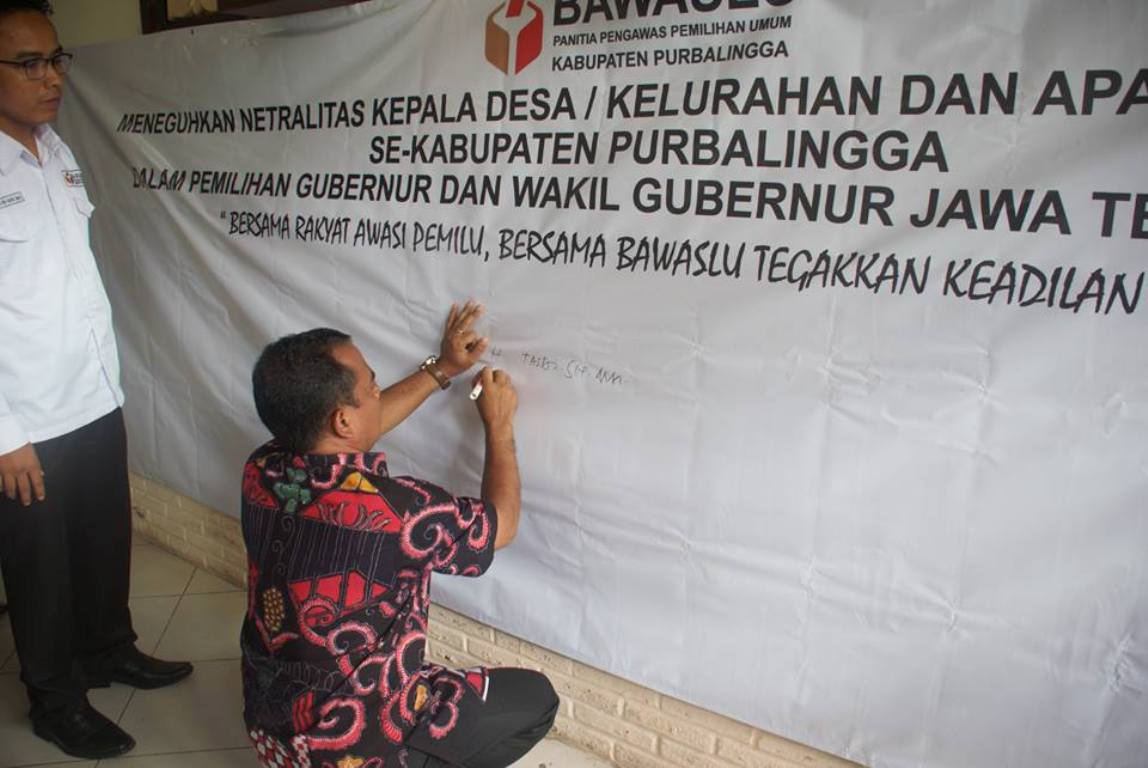 BAWASLU
PANITIA PENGAWAS PEMILIHAN UMUM
KABUPATEN PURBALINGGA
MENEGUHKAN NETRALITAS KEPALA DESA / KELURAHAN DAN APA
SE-KABUPATEN PURBALINGGA
DALAM PEMILIHAN GUBERNUR DAN WAKIL GUBERNUR JAWA TE
"BERSAMA RAKYAT AWASI PEMILU, BERSAMA BAWASLU TEGAKKAN KEADILAN